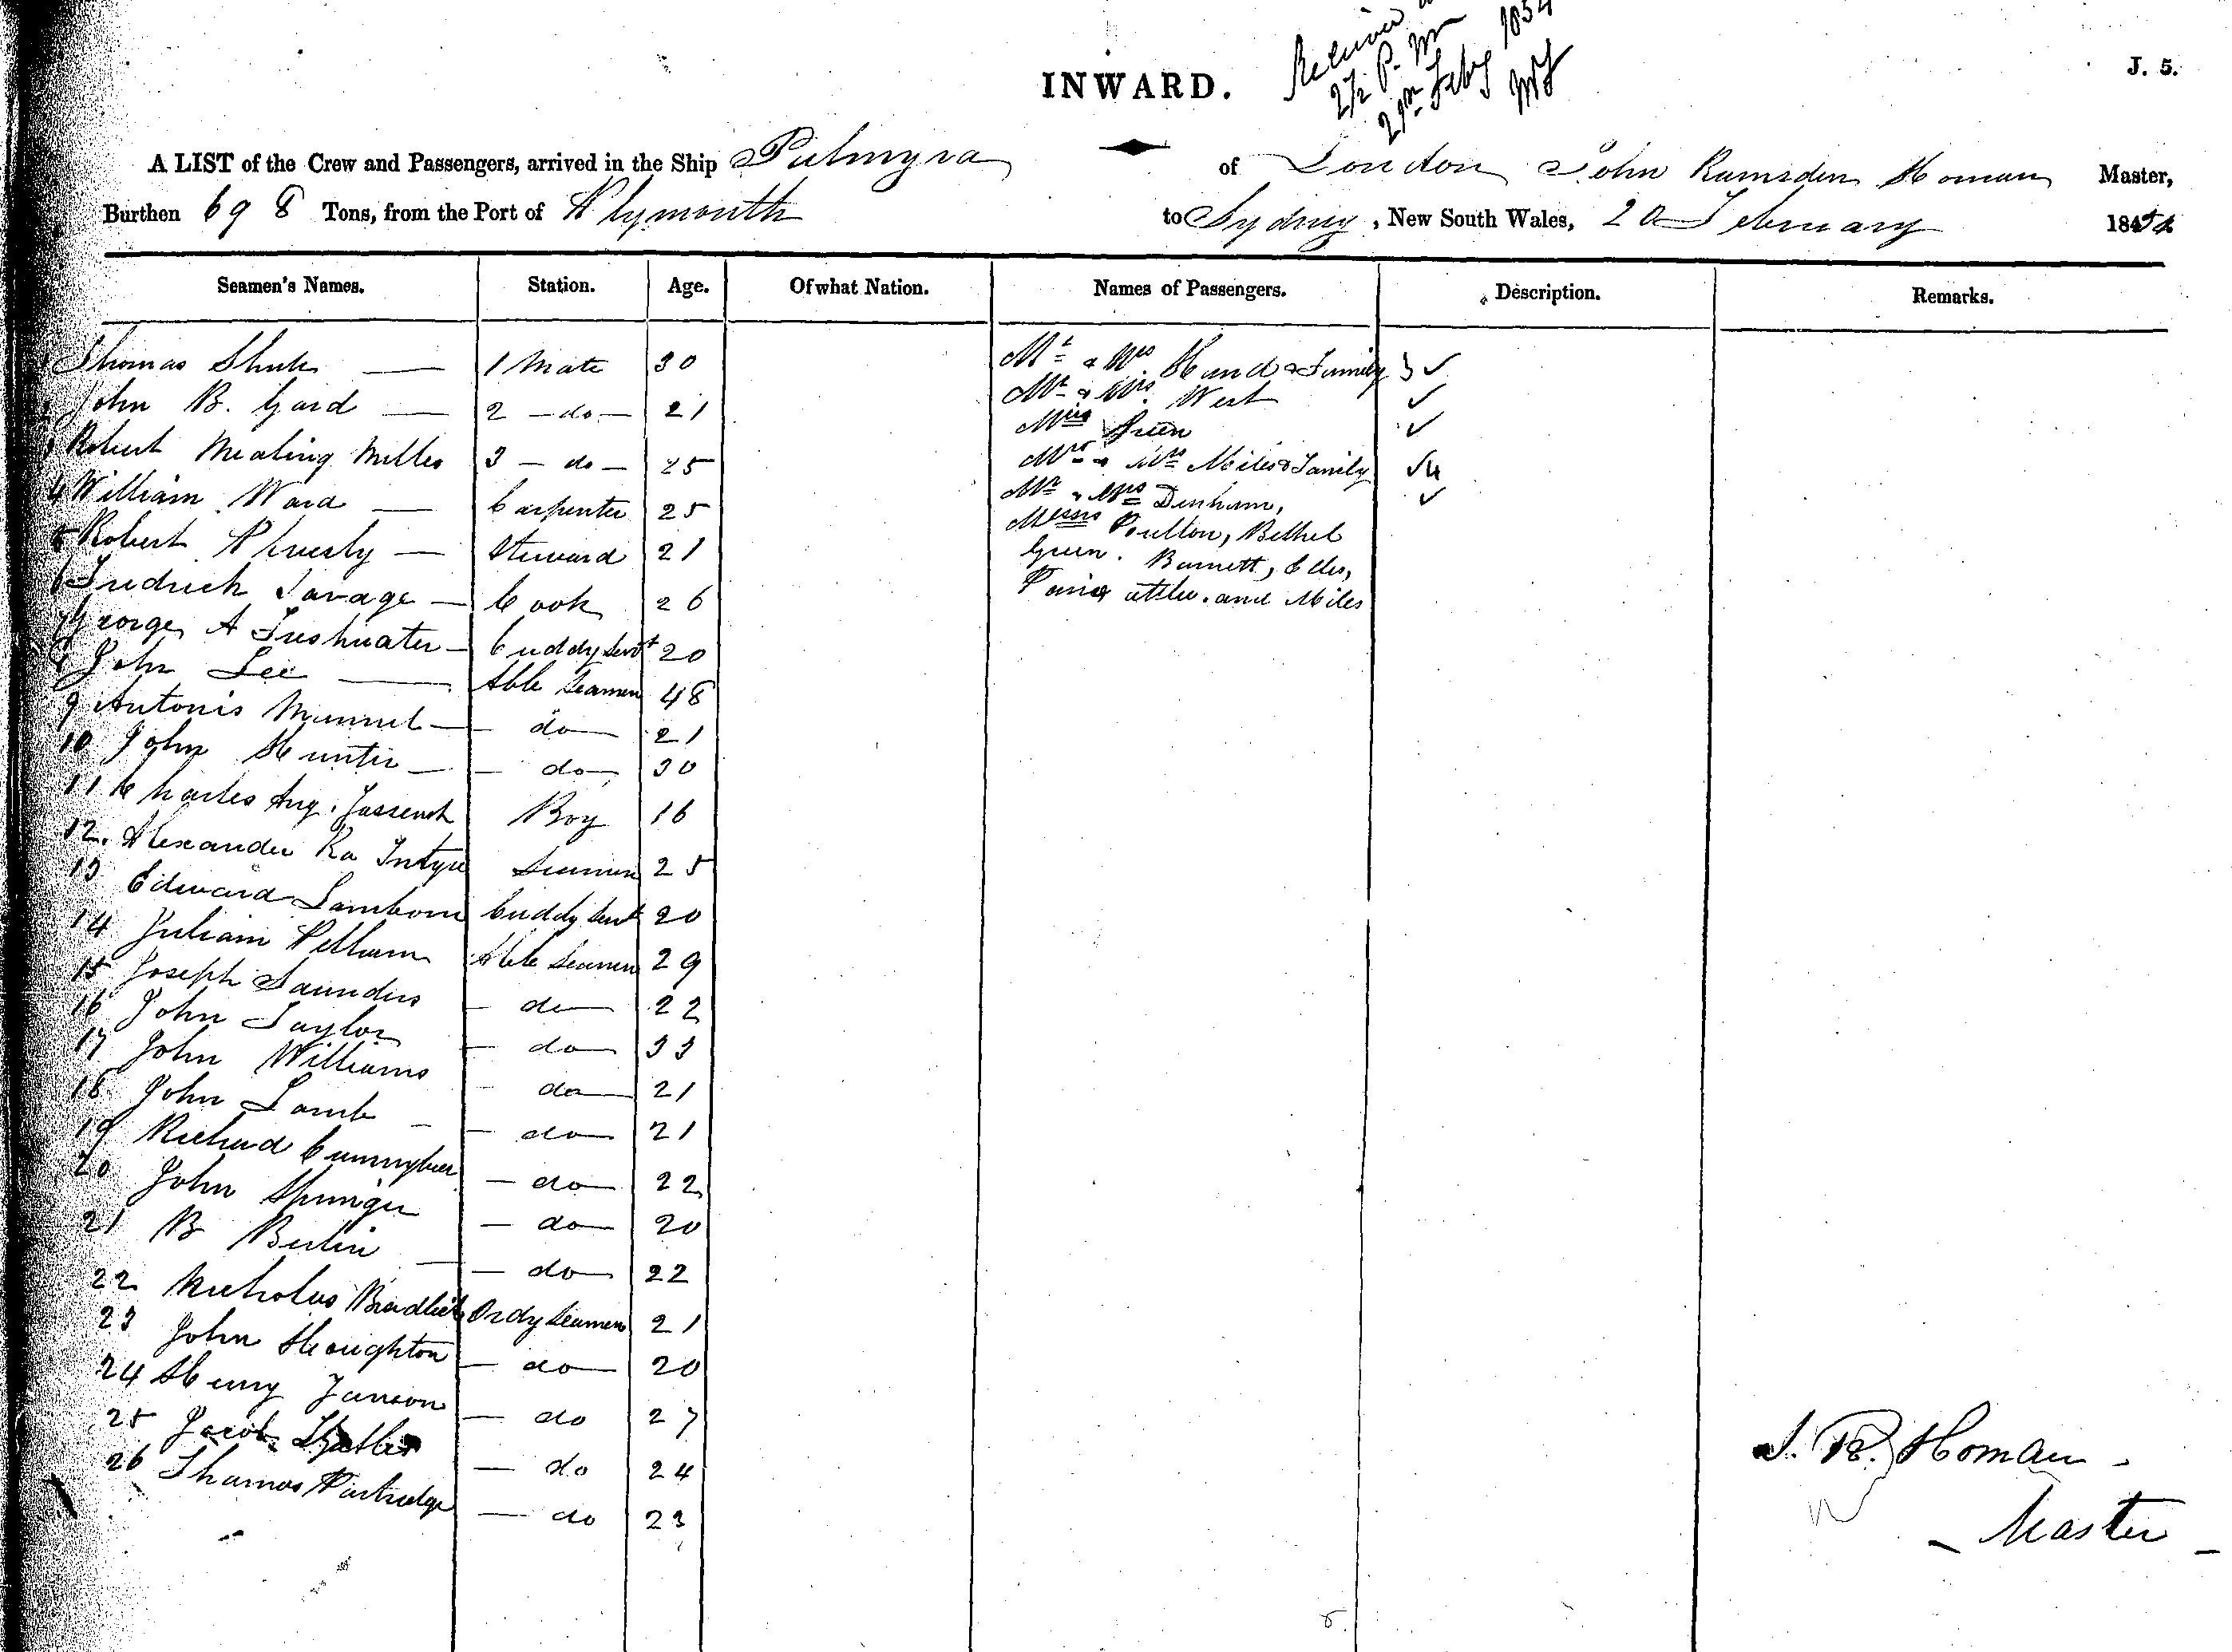 INWARD.
J. 5.
2½ P. M
21st Feby 1854
A LIST of the Crew and Passengers, arrived in the Ship Palmyra of London John Ramsden Homan Master,
Burthen 698 Tons, from the Port of Plymouth to Sydney, New South Wales, 20 February 1854
Seamen's Names. Station. Age. Of what Nation. Names of Passengers. Description. Remarks.
Thomas 1 Mate 30
John B. Gard 2 - do - 21
Robert Mealing Miller 3 - do - 25
4 William Ward Carpenter 25
5 Robert Steward 21
6 Fredrick Savage Cook 26
7 George A Freshwater Cuddy Servt 20
John Lee Able Seamen 48
9 Antonis do 21
10 John Hunter do 30
11 Charles Aug. Boy 16
12. Alexander Intyre Seamen 25
13 Edward Lamborn Cuddy Servt 20
14 Juliam Pelham Able Seamen 29
15 Joseph Saunders do 22
16 John Taylor do 33
17 John Williams do 21
18 John Lamb do 21
19 Richard do 22
20 John Springer do 20
21 B Berlin do 22
22 Nicholas Ordy Seamen 21
23 John Houghton do 20
24 Henry Janson do 27
25 Jacob do 24
26 Thomas Partridge do 23
Mr & Mrs Hand & Family 3 ✓
Mr & Mrs West ✓
Miss Green ✓
Mr & Mrs Miles & Family ✓ 4
Mr & Mrs Denham, ✓
Messrs Poulton, Bethel
Green. Burnett,
and Miles
J. R. Homan
- Master -